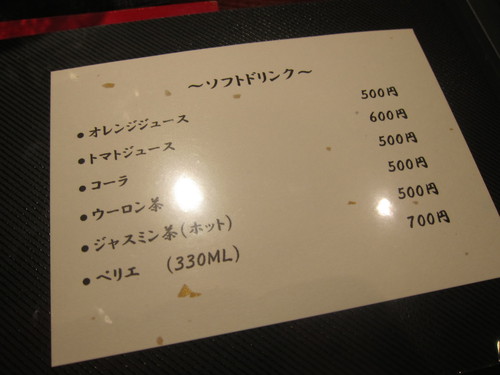 ～ソフトドリンク～
●オレンジジュース 500円
●トマトジュース 600円
●コーラ 500円
●ウーロン茶 500円
●ジャスミン茶(ホット) 500円
●ペリエ (330ML) 700円